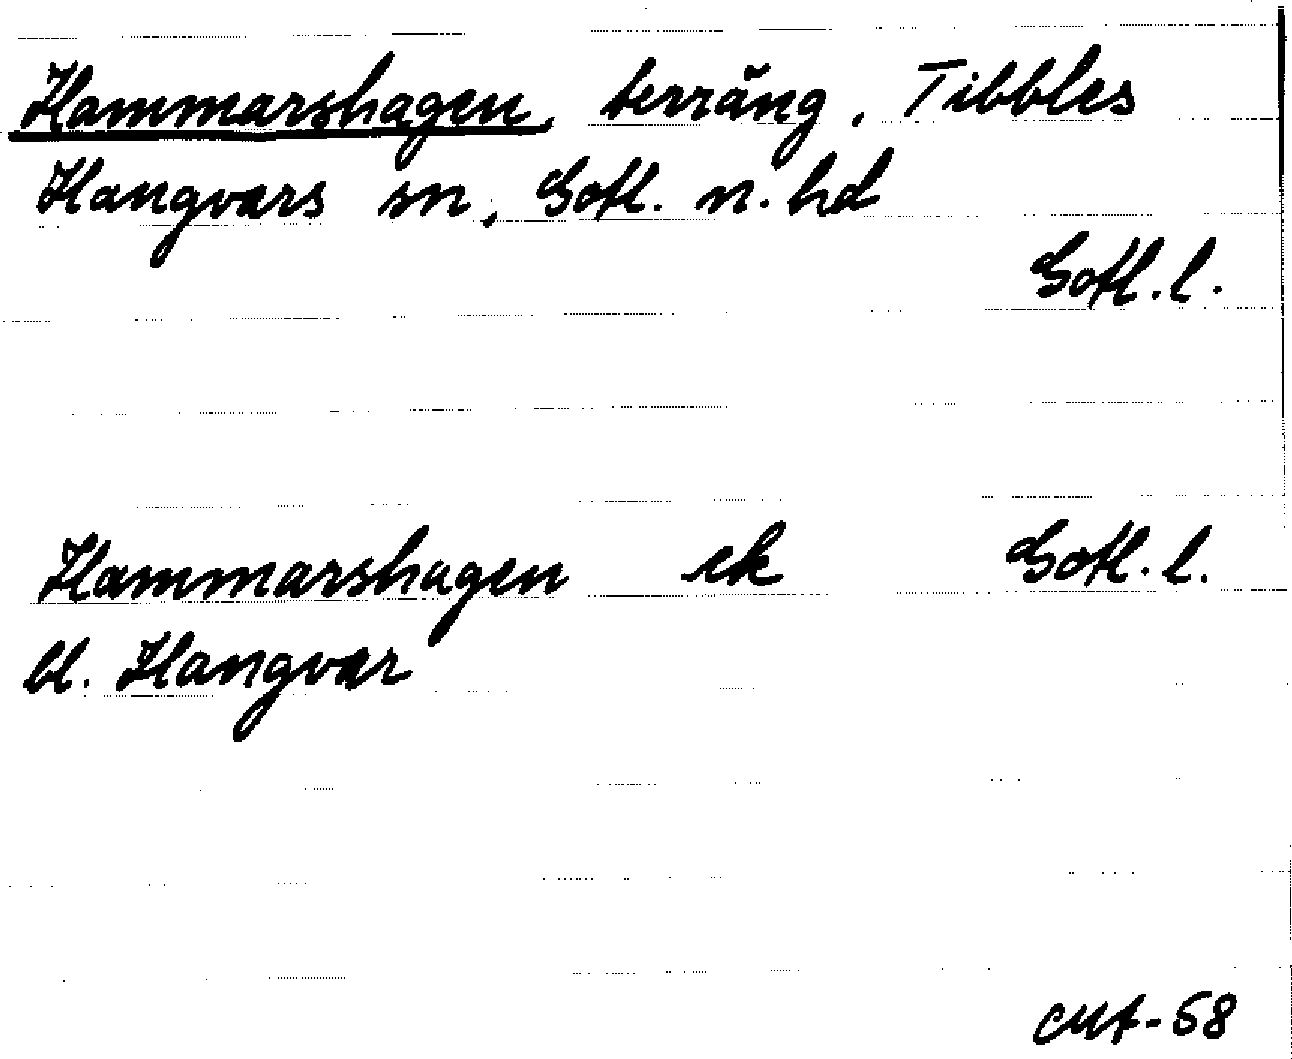 Hammarshagen, terräng, Tibbles
Hangvars sn, Gotl. n. hd
Gotl. l.
Hammarshagen ek Gotl. l.
bl. Hangvar
-58